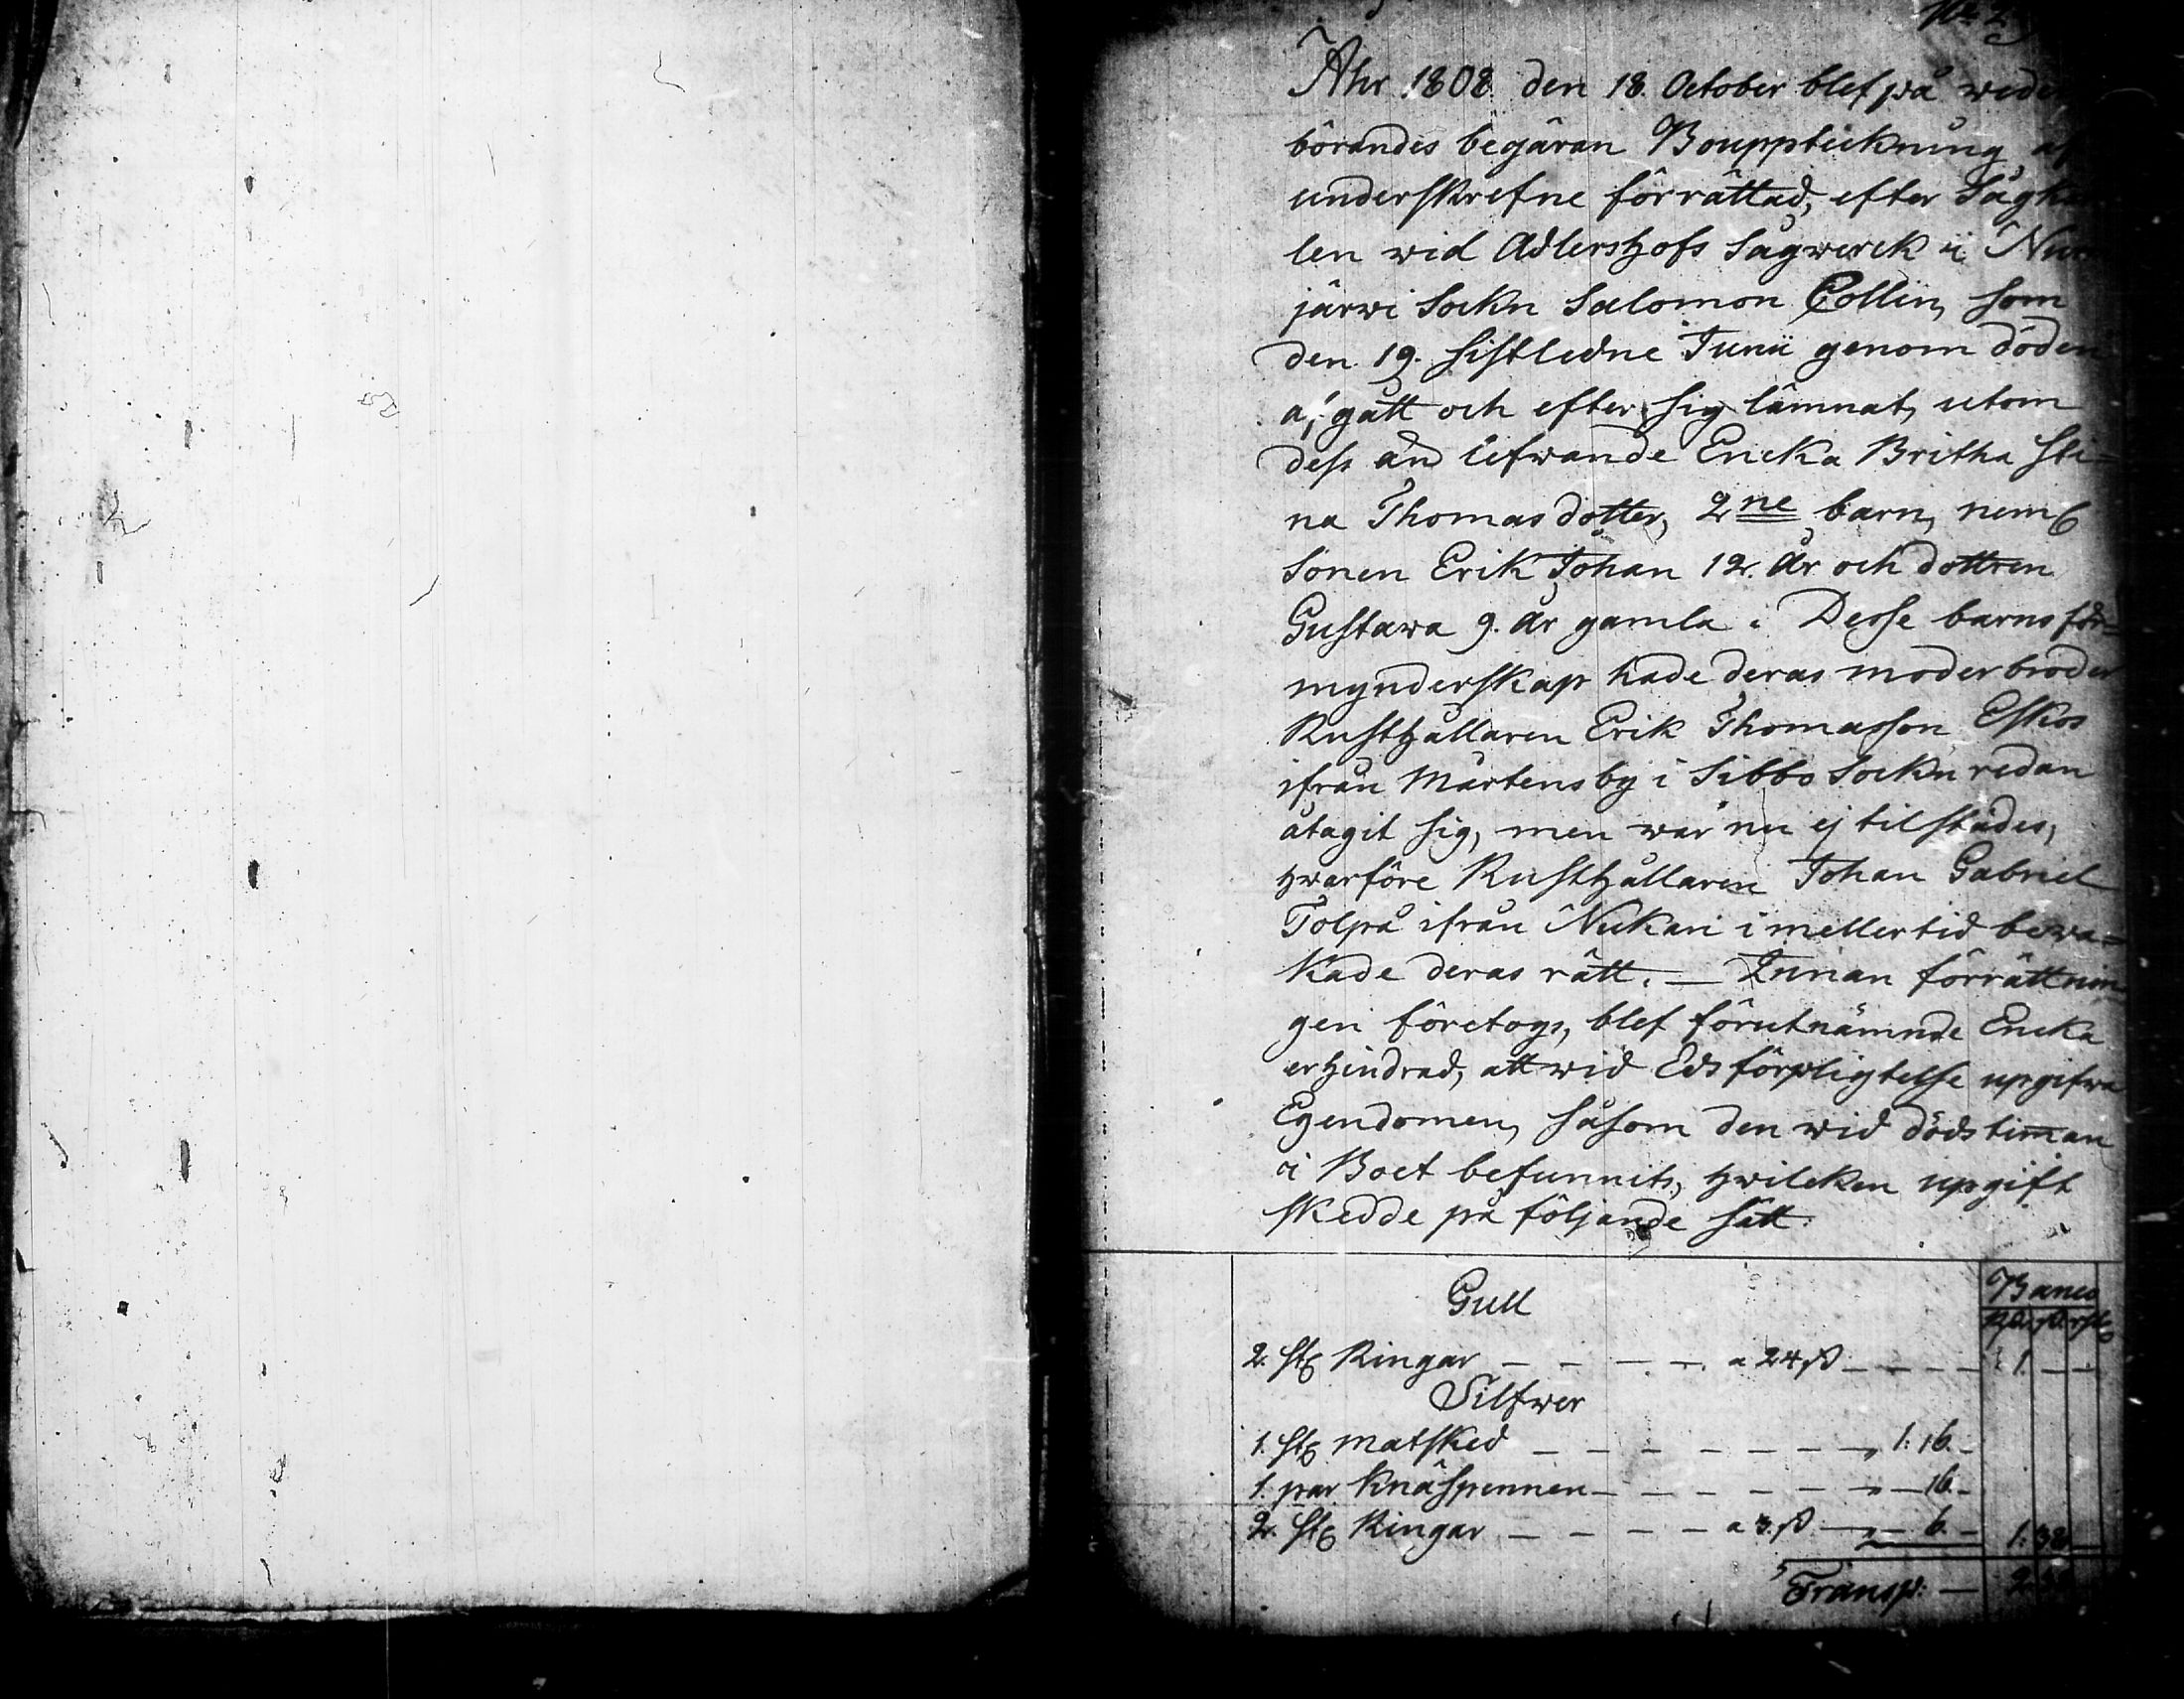 No 2
Åhr 1808. den 18. October blef på weder
börandes begäran Bouppteckning af
underskrefne förrättad, efter Sågka
len wid Adlershofs Sågwerck i Nur
järwi Sockn Salomon Collin, som
den 19. sistledne Junii genom döden
afgått och efter sig lämnat, utom
dess än lefwande Encka Britha Sti=
na Thomasdotter, 2ne barn, neml
Sonen Erik Johan 12. År och dottren
Gustawa 9. År gamla. Desse barns för=
mynderskap hade deras moderbroder
Rusthållaren Erik Thomasson Eskos
ifrån Mårtensby i Sibbo Sockn redan
åtagit sig, men war nu ej tilstädes,
hwarföre Rusthållaren Johan Gabriel
Tolpå ifrån Nukari imellertid bewa=
kade deras rätt. — Innan förrättnin
gen företogs, blef förutnämnde Encka
erhindrad, att wid Edsförpligtelse upgifwa
Egendomen, såsom den wid dödstiman
i Boet befunnits, hwilcken upgift
skedde på följande sätt.
Gull Banco
Rd. ß rst
2. st Ringar — — — — a 24 ß — — — — 1. — —
Silfwer
1. st matsked — — — — — — — 1: 16. —
1. par Knäspennen — — — — — — — 16. —
2. st Ringar — — — — a 3. ß — — 6. — 1: 38. —
Transp: — 2. 38